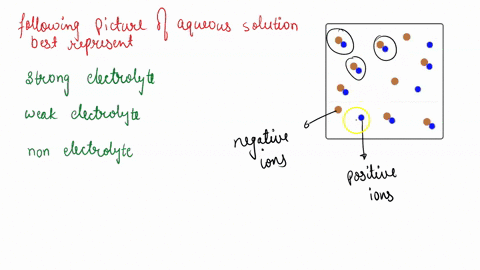 following picture of aqueous solution
best represent
strong electrolyte
weak electrolyte
non electrolyte
negative
ions
positive
ions